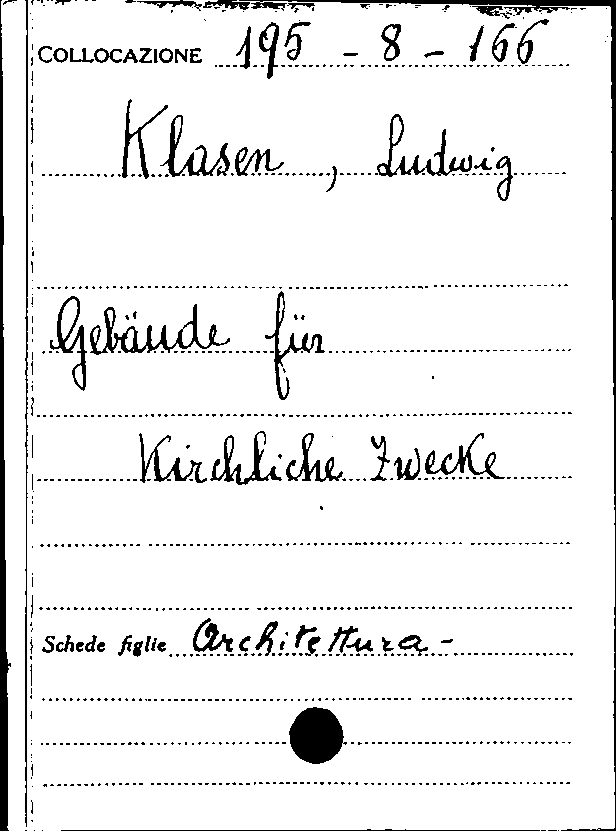 COLLOCAZIONE 195 - 8 - 166
Klasen, Ludwig
Gebäude für
Kirchliche Zwecke
Schede figlie Architettura -